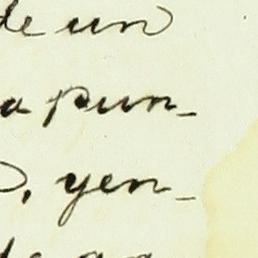 de un
a pun-
, yen-